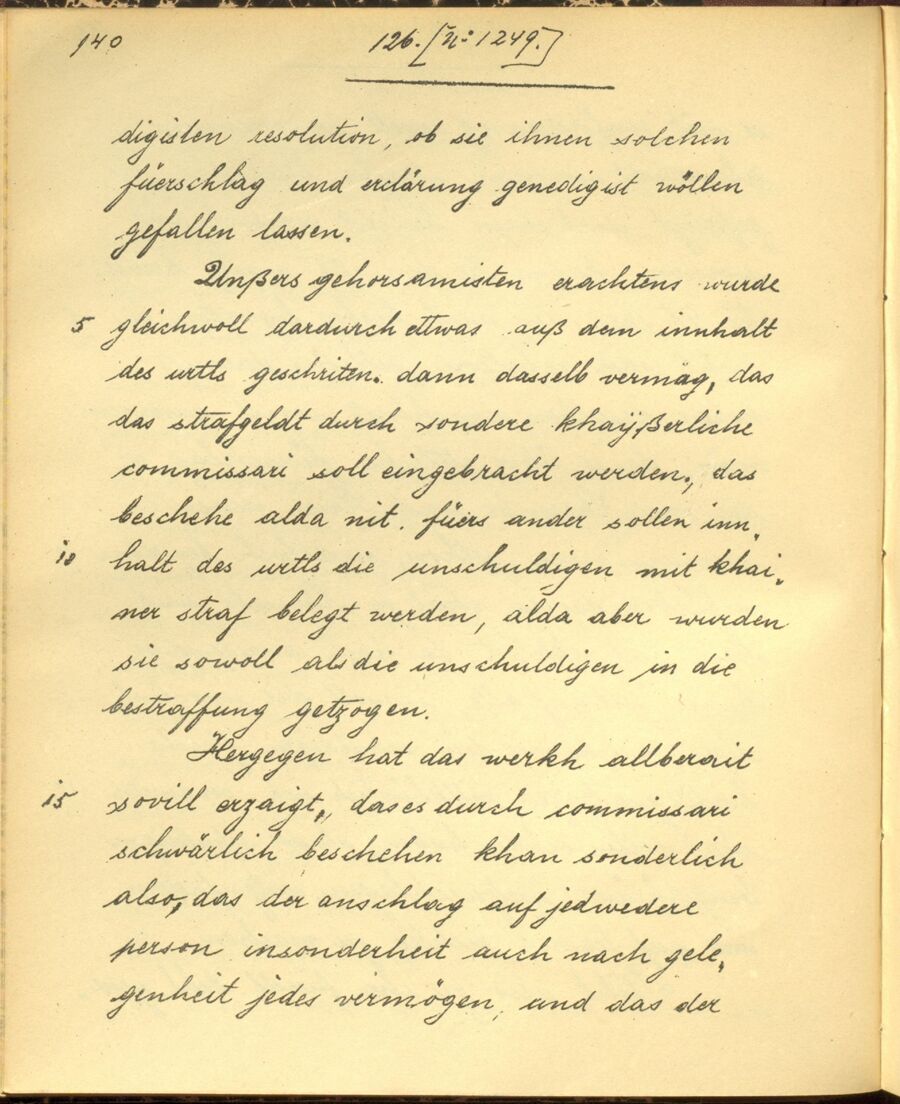 140
126. [No: 1249.]
digisten resolution, ob sie ihnen solchen
füerschlag und erclärung genedigist wöllen
gefallen lassen.
Unßers gehorsamisten erachtens wurde
5 gleichwoll dardurch ettwas auß dem innhalt
des urtls geschriten. dann dasselb vermag, das
das strafgeldt durch sondere khaÿßerliche
commissari soll eingebracht werden, das
beschehe alda nit. füers ander sollen inn„
10 halt des urtls die unschuldigen mit khai„
ner straf belegt werden, alda aber wurden
sie sowoll als die unschuldigen in die
bestraffung getzogen.
Hergegen hat das werkh allberait
15 sovill erzaigt, das es durch commissari
schwärlich beschehen khan sonderlich
also, das der anschlag auf jedwedere
person insonderheit auch nach gele„
genheit jedes vermögen, und das der